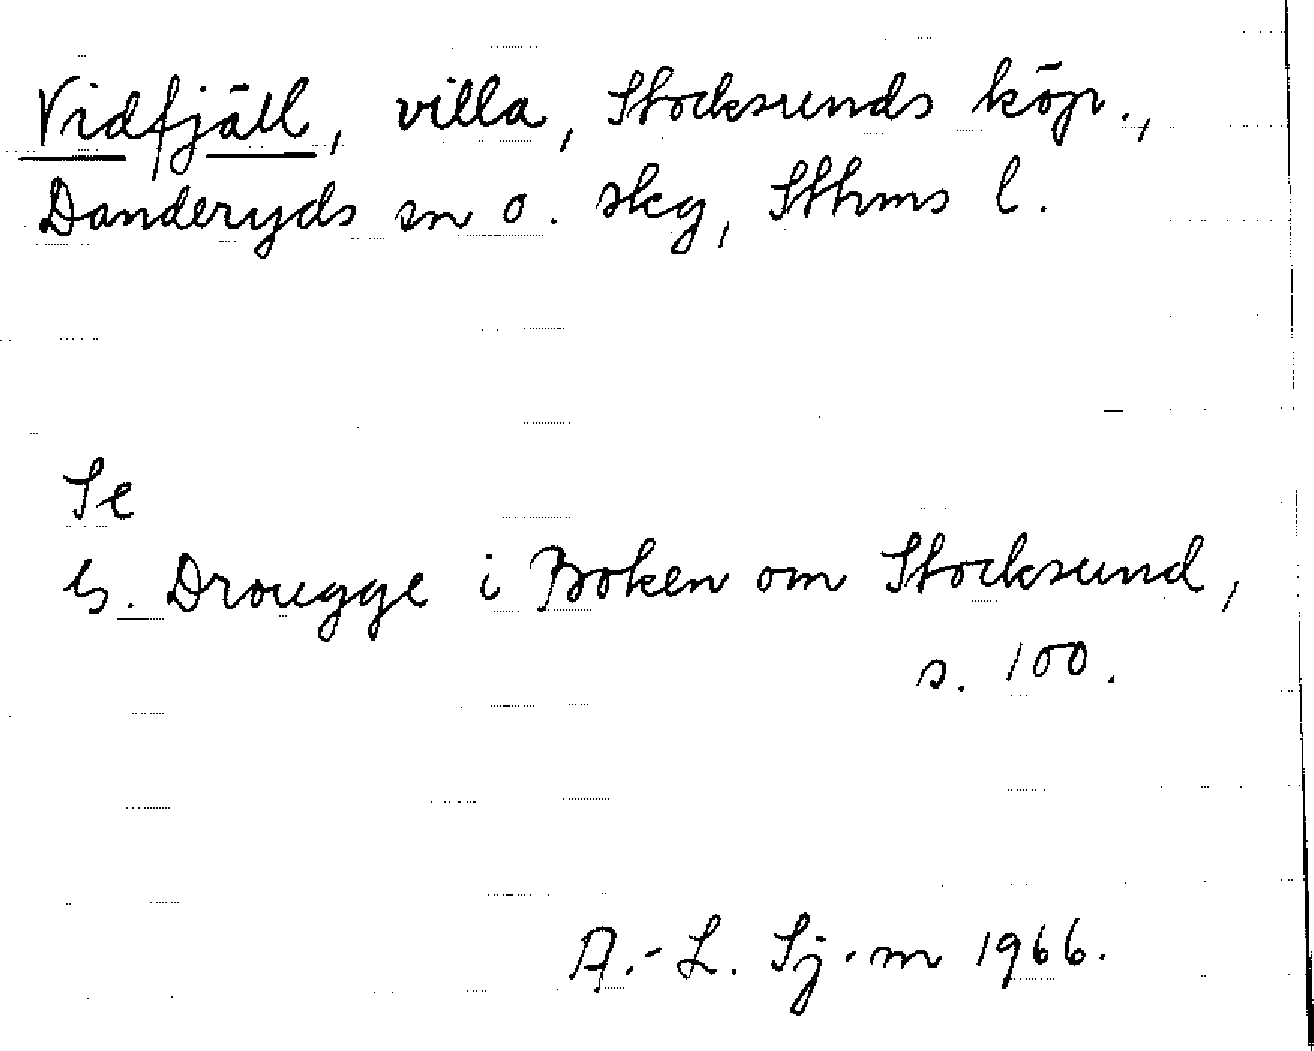 Vidfjäll, villa, Stocksunds köp.,
Danderyds sn o. skg, Sthms l.
Se
G. Drougge i Boken om Stocksund,
s. 100.
A.-L. Sj-m 1966.